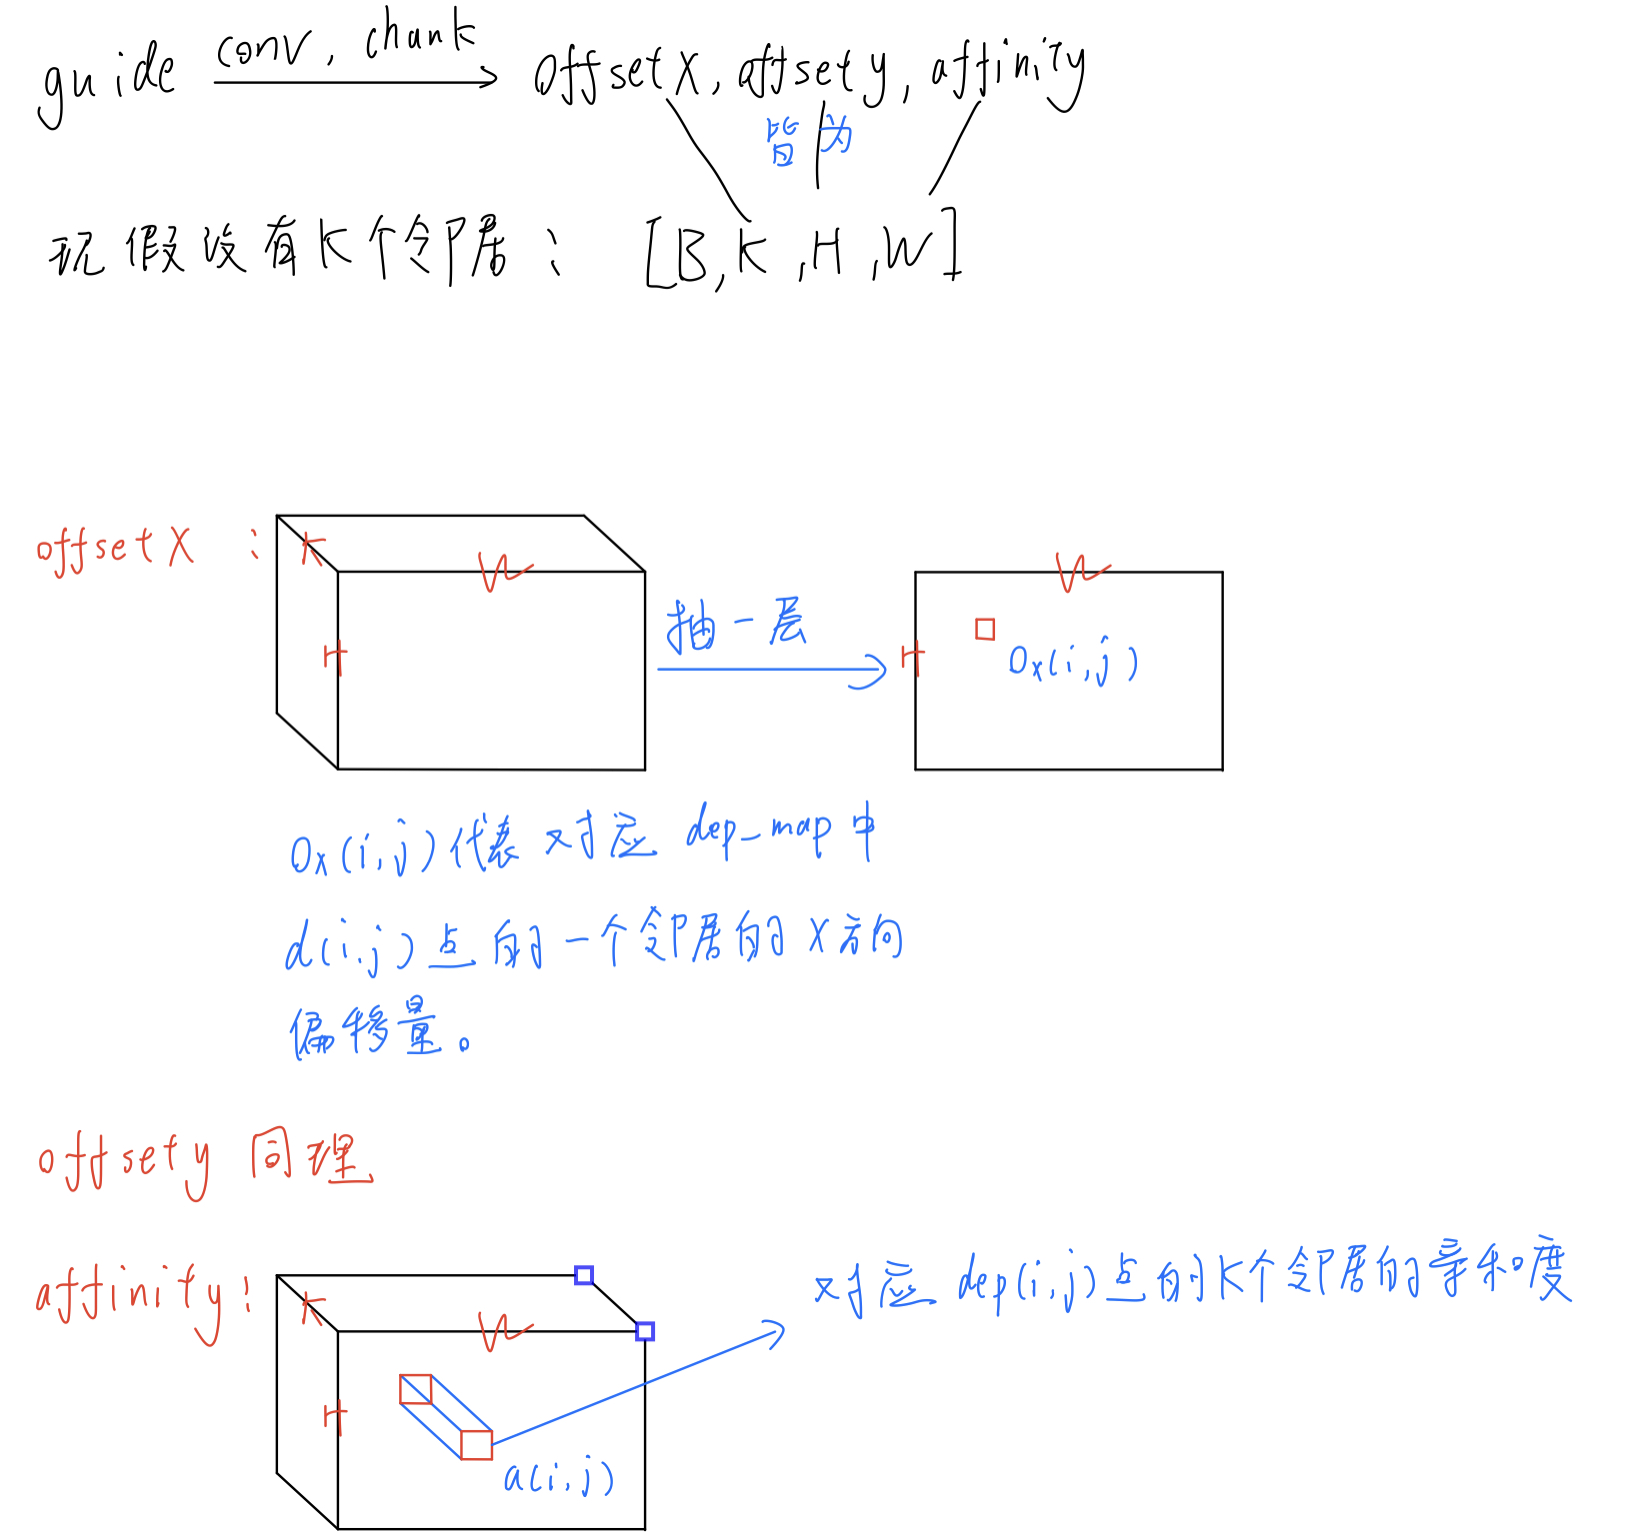 guide conv, chank offsetX, affsety, affinity
皆为
现假设有K个邻居: [B,K,H,W]
offsetX : K W H
抽一层
W H Ox(i,j)
Ox(i,j)代表对应 dep_map中
d(i,j)点的一个邻居的X方向
偏移量。
offsety 同理
affinity: K W H
对应 dep(i,j)点的K个邻居的亲和度
a(i,j)